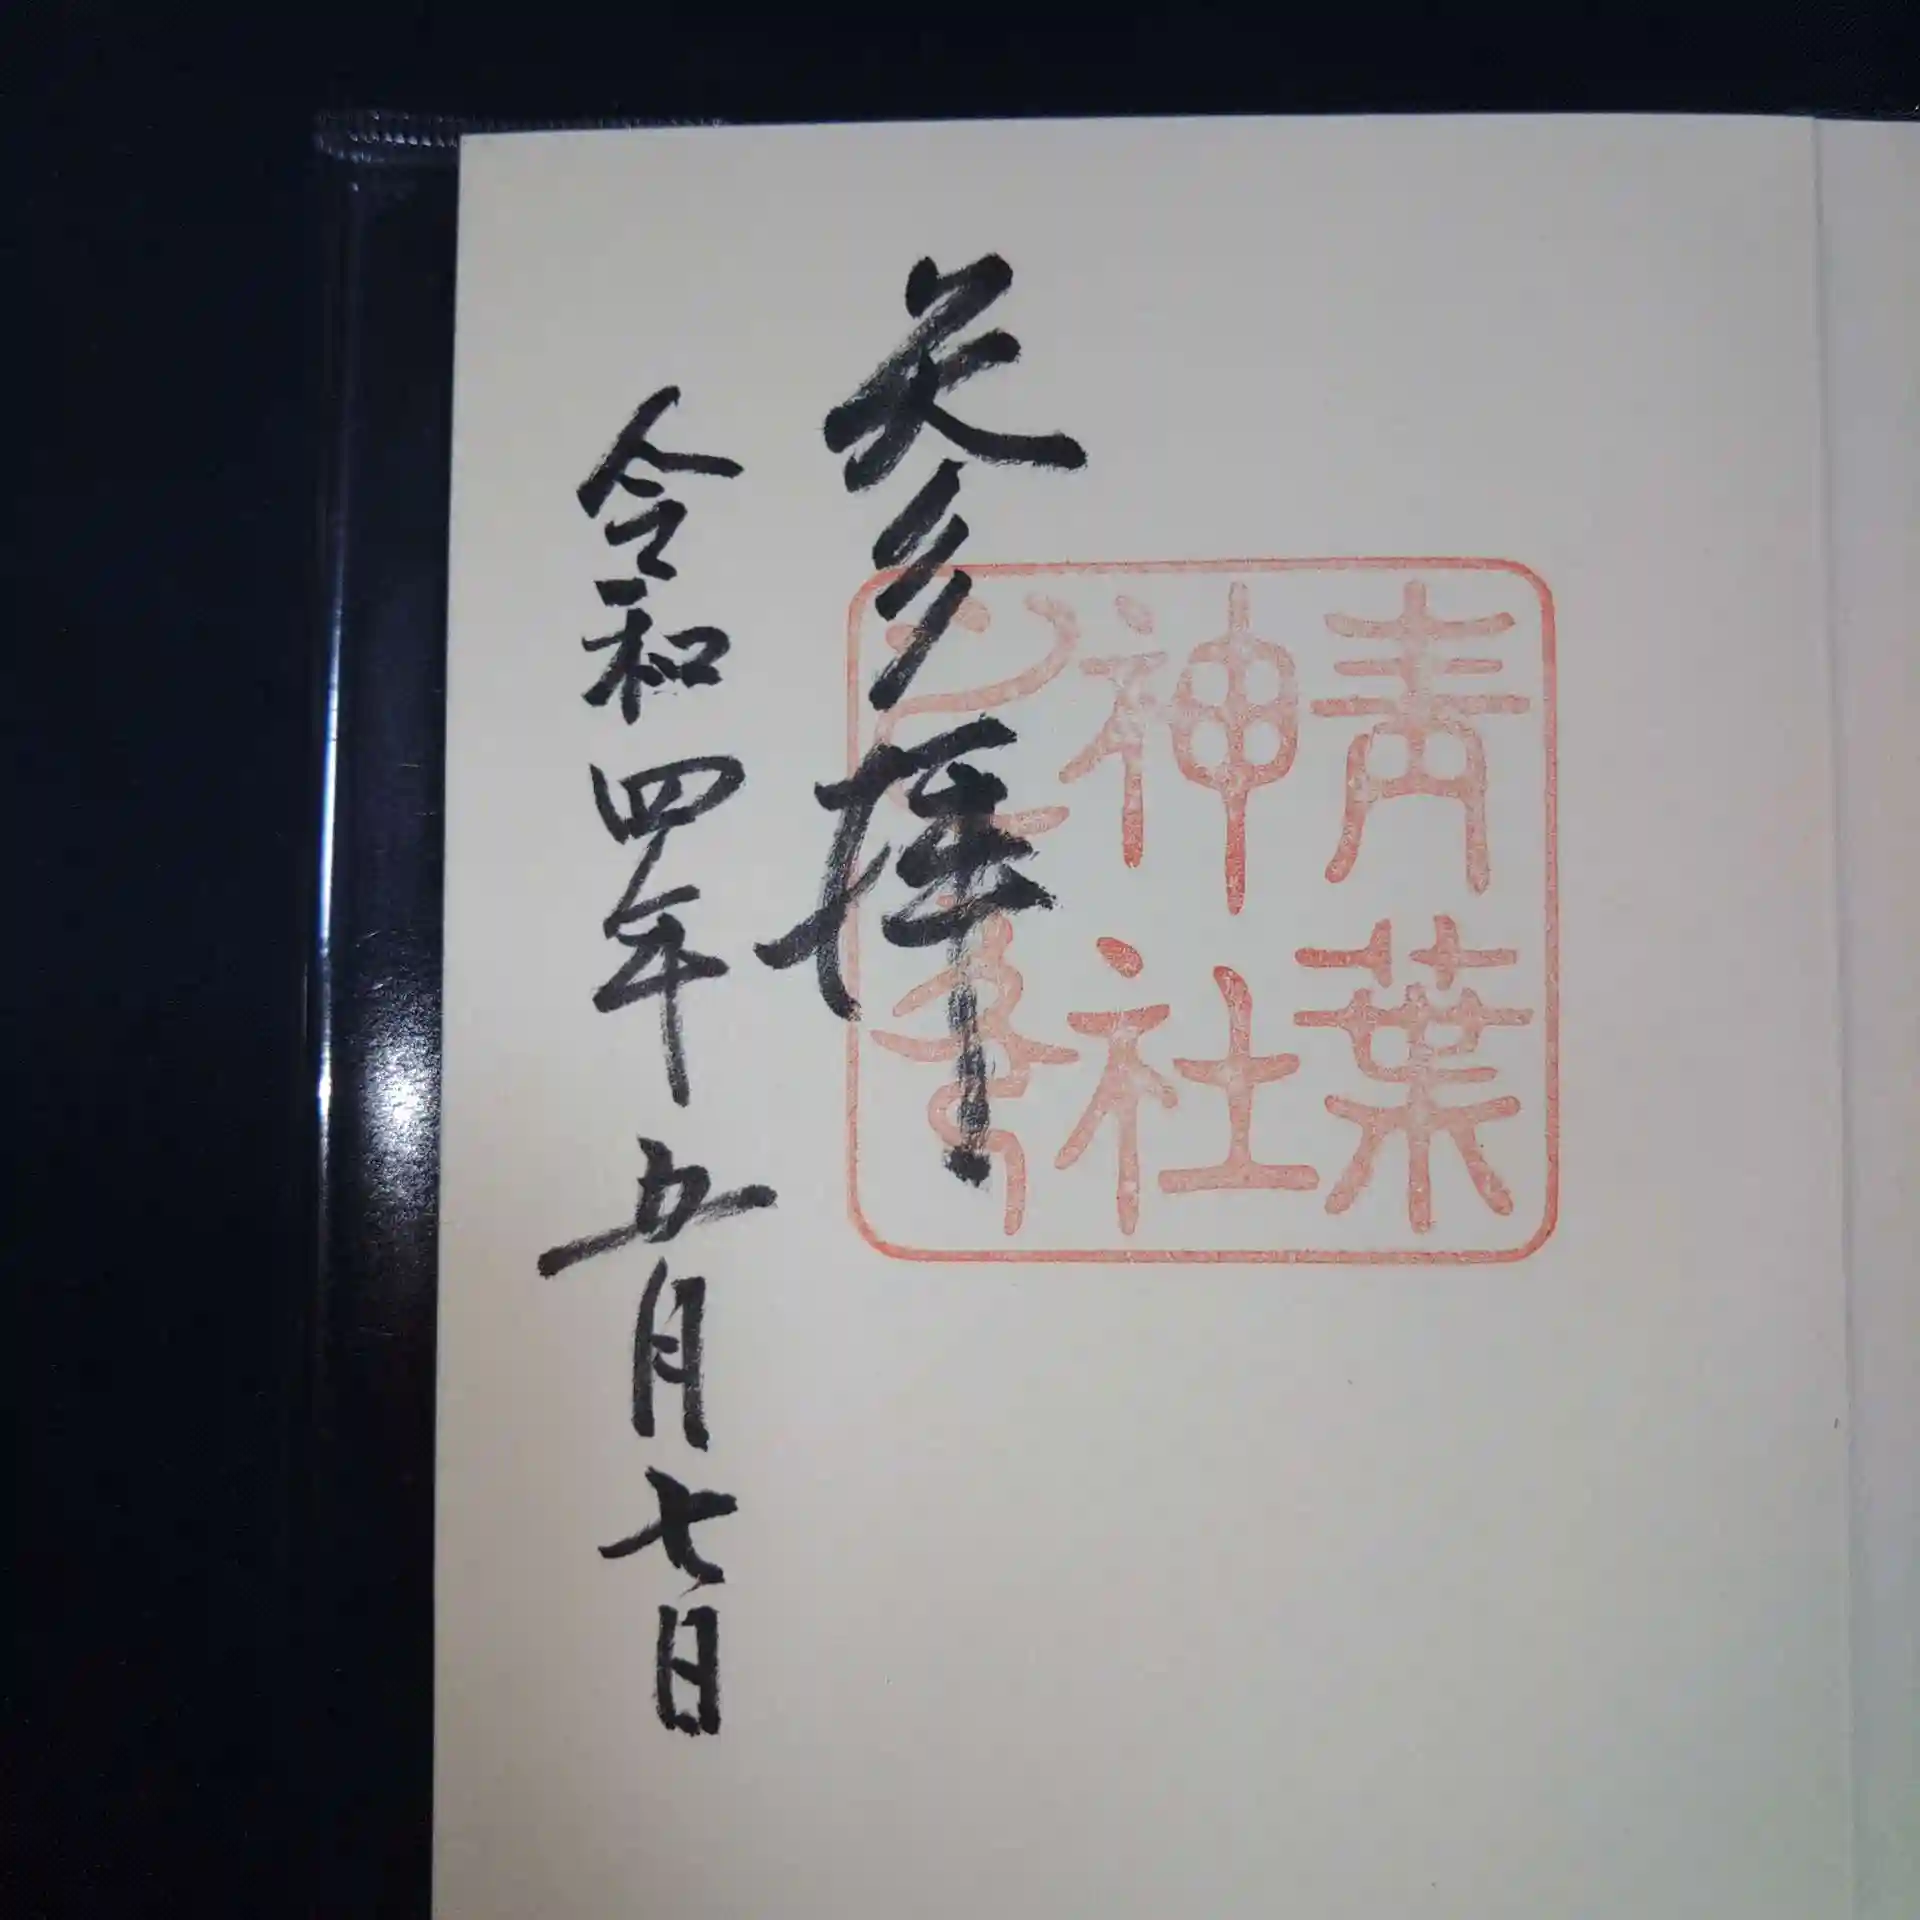 青葉
神社
之書
参拝
令和四年五月七日